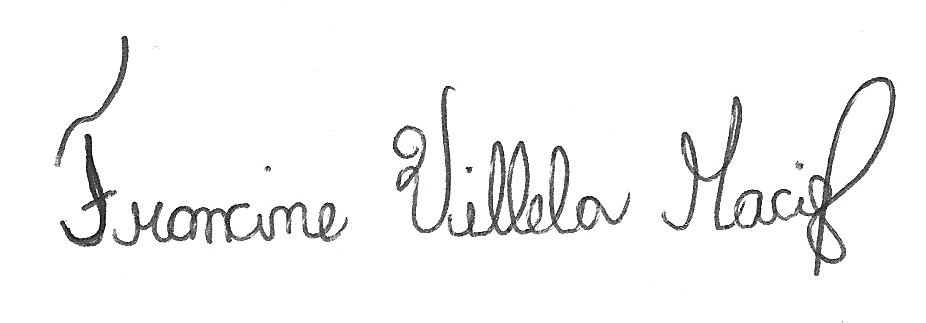 Francine Villela Maciel